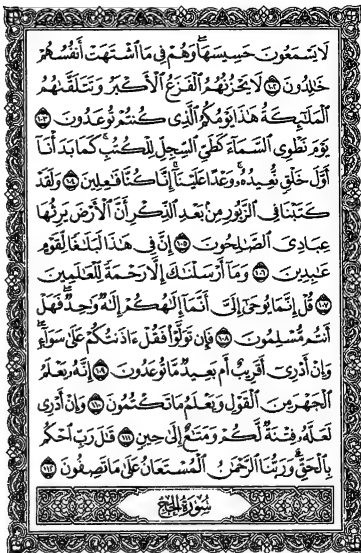 لَا يَسْمَعُونَ حَسِيسَهَا ۖ وَهُمْ فِي مَا اشْتَهَتْ أَنفُسُهُمْ
خَالِدُونَ ١٠٢ لَا يَحْزُنُهُمُ الْفَزَعُ الْأَكْبَرُ وَتَتَلَقَّاهُمُ
الْمَلَائِكَةُ هَٰذَا يَوْمُكُمُ الَّذِي كُنتُمْ تُوعَدُونَ ١٠٣
يَوْمَ نَطْوِي السَّمَاءَ كَطَيِّ السِّجِلِّ لِلْكُتُبِ ۚ كَمَا بَدَأْنَا
أَوَّلَ خَلْقٍ نُّعِيدُهُ ۚ وَعْدًا عَلَيْنَا ۚ إِنَّا كُنَّا فَاعِلِينَ ١٠٤ وَلَقَدْ
كَتَبْنَا فِي الزَّبُورِ مِن بَعْدِ الذِّكْرِ أَنَّ الْأَرْضَ يَرِثُهَا
عِبَادِيَ الصَّالِحُونَ ١٠٥ إِنَّ فِي هَٰذَا لَبَلَاغًا لِّقَوْمٍ
عَابِدِينَ ١٠٦ وَمَا أَرْسَلْنَاكَ إِلَّا رَحْمَةً لِّلْعَالَمِينَ
١٠٧ قُلْ إِنَّمَا يُوحَىٰ إِلَيَّ أَنَّمَا إِلَٰهُكُمْ إِلَٰهٌ وَاحِدٌ ۖ فَهَلْ
أَنتُم مُّسْلِمُونَ ١٠٨ فَإِن تَوَلَّوْا فَقُلْ ءَاذَنتُكُمْ عَلَىٰ سَوَاءٍ ۖ
وَإِنْ أَدْرِي أَقَرِيبٌ أَم بَعِيدٌ مَّا تُوعَدُونَ ١٠٩ إِنَّهُ يَعْلَمُ
الْجَهْرَ مِنَ الْقَوْلِ وَيَعْلَمُ مَا تَكْتُمُونَ ١١٠ وَإِنْ أَدْرِي
لَعَلَّهُ فِتْنَةٌ لَّكُمْ وَمَتَاعٌ إِلَىٰ حِينٍ ١١١ قَالَ رَبِّ احْكُم
بِالْحَقِّ ۗ وَرَبُّنَا الرَّحْمَٰنُ الْمُسْتَعَانُ عَلَىٰ مَا تَصِفُونَ ١١٢
سُورَةُ الْحَجِّ